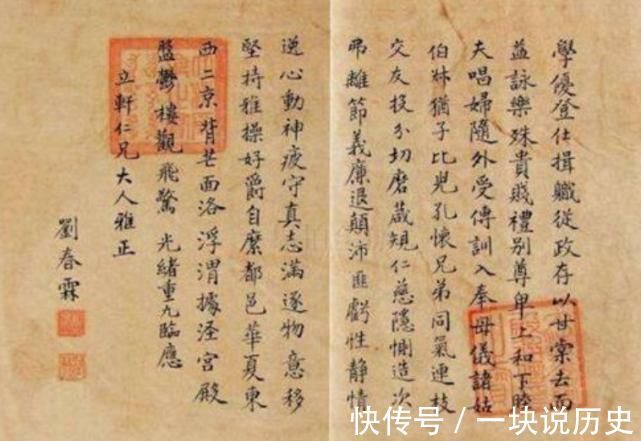 學優登仕攝職從政存以甘棠去而
益詠樂殊貴賤禮別尊卑上和下睦
夫唱婦隨外受傅訓入奉母儀諸姑
伯叔猶子比兒孔懷兄弟同氣連枝
交友投分切磨箴規仁慈隱惻造次
弗離節義廉退顛沛匪虧性靜情
逸心動神疲守真志滿逐物意移
堅持雅操好爵自縻都邑華夏東
西二京背芒面洛浮渭據涇宮殿
盤鬱樓觀飛驚 光緒重九臨應
立軒仁兄大人雅正
劉春霖
快传号/一块说历史